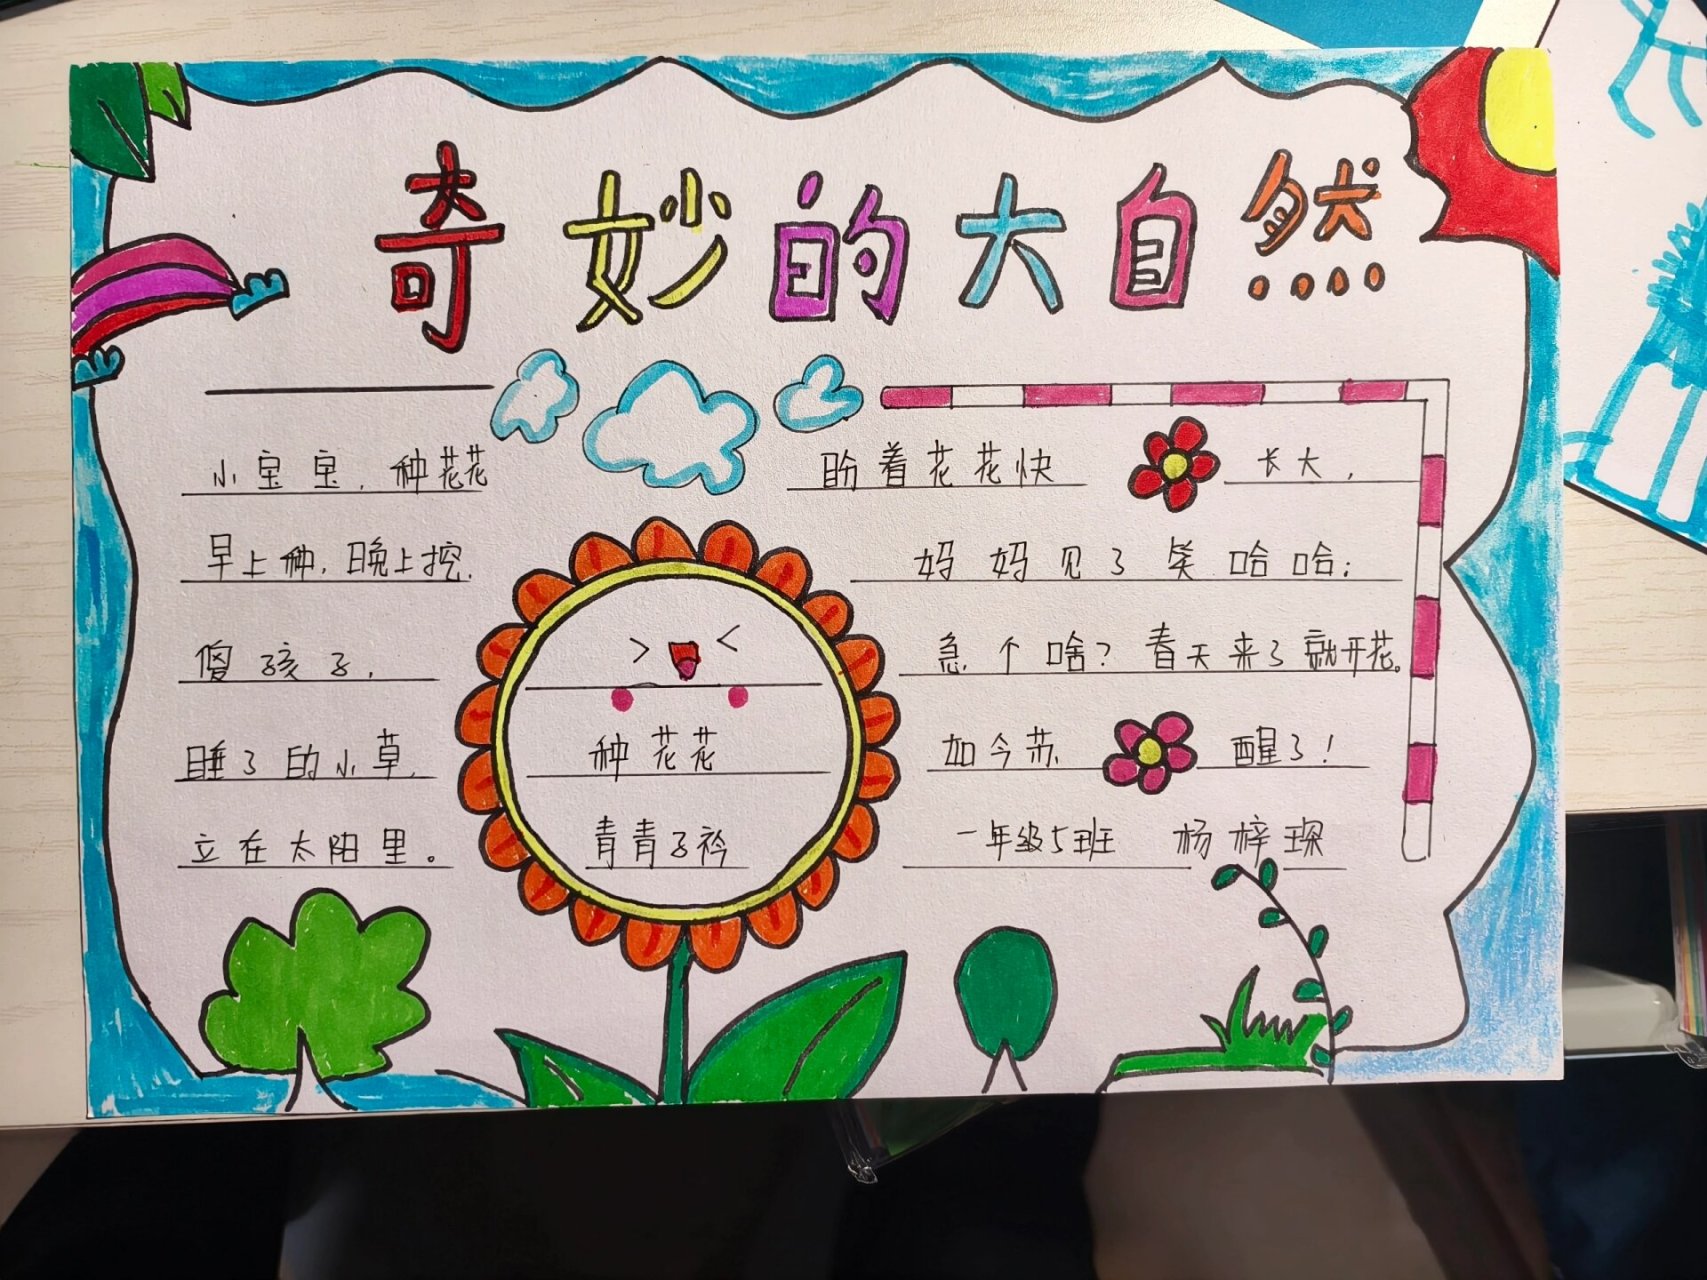 奇妙的大自然
小宝宝，种花花
早上种，晚上挖，
傻孩子，
睡了的小草，
立在太阳里。
种花花
青青子衿
盼着花花快长大，
妈妈见了笑哈哈：
急个啥？春天来了就开花。
如今苏醒了！
一年级5班 杨梓琛